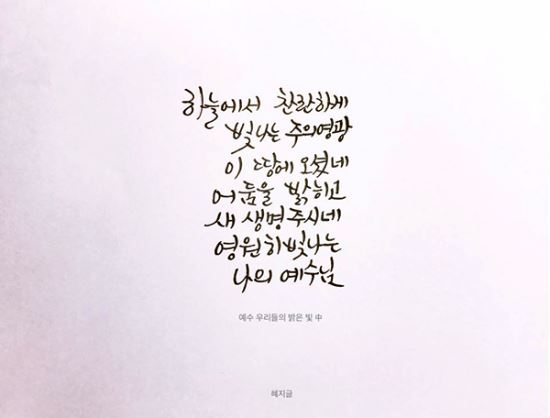 하늘에서 찬란하게
빛나는 주의영광
이 땅에 오셨네
어둠을 밝히고
새 생명 주시네
영원히 빛나는
나의 예수님
예수 우리들의 밝은 빛 中
혜지글